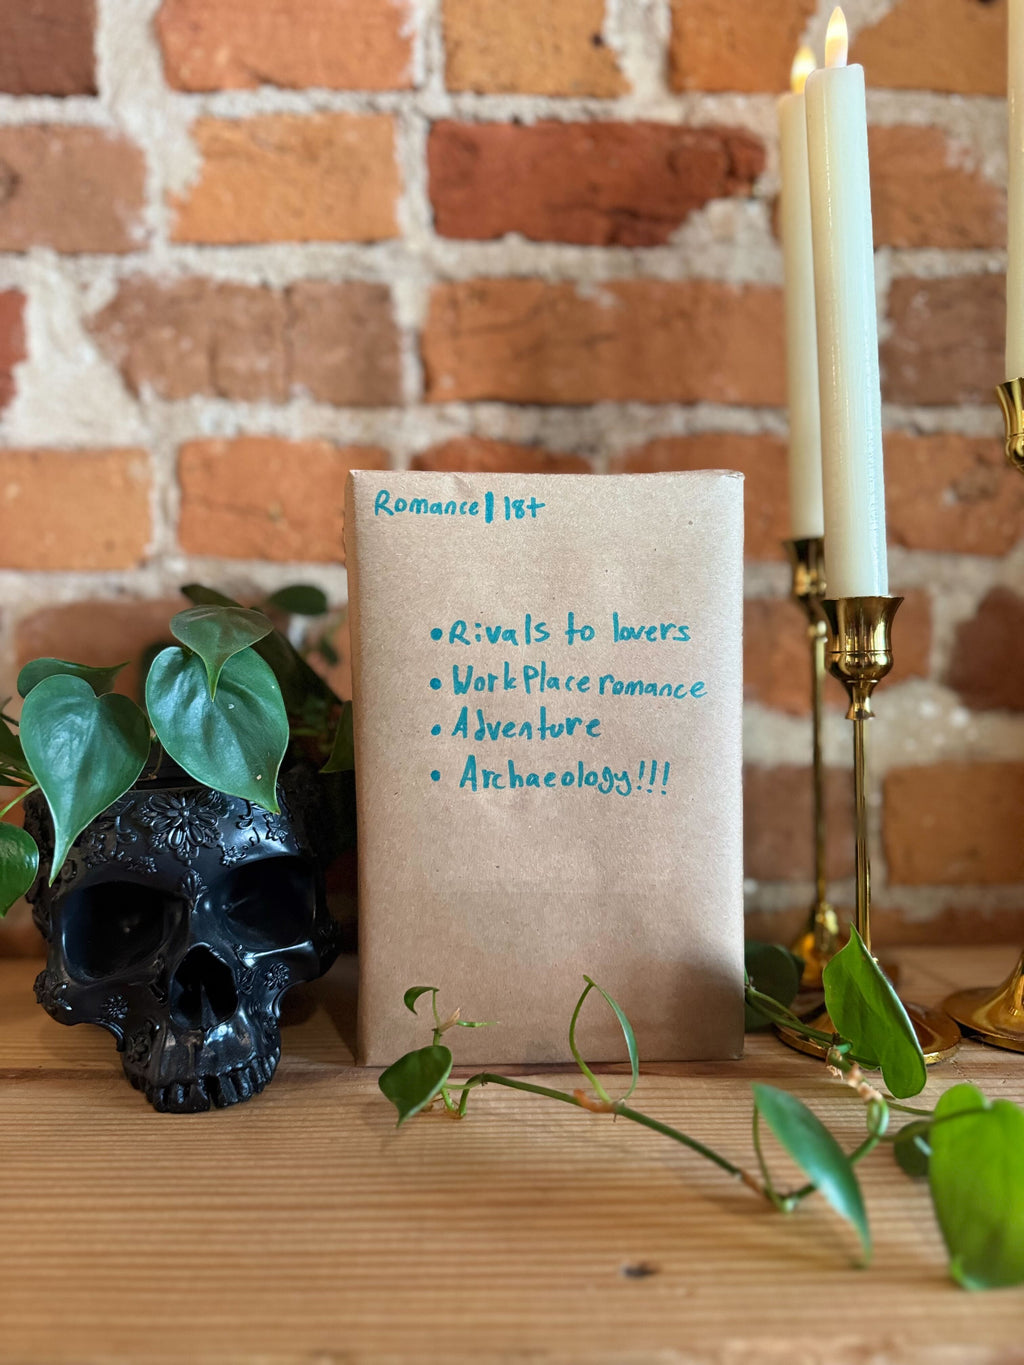 Romance | 18+
• Rivals to lovers
• Workplace romance
• Adventure
• Archaeology!!!